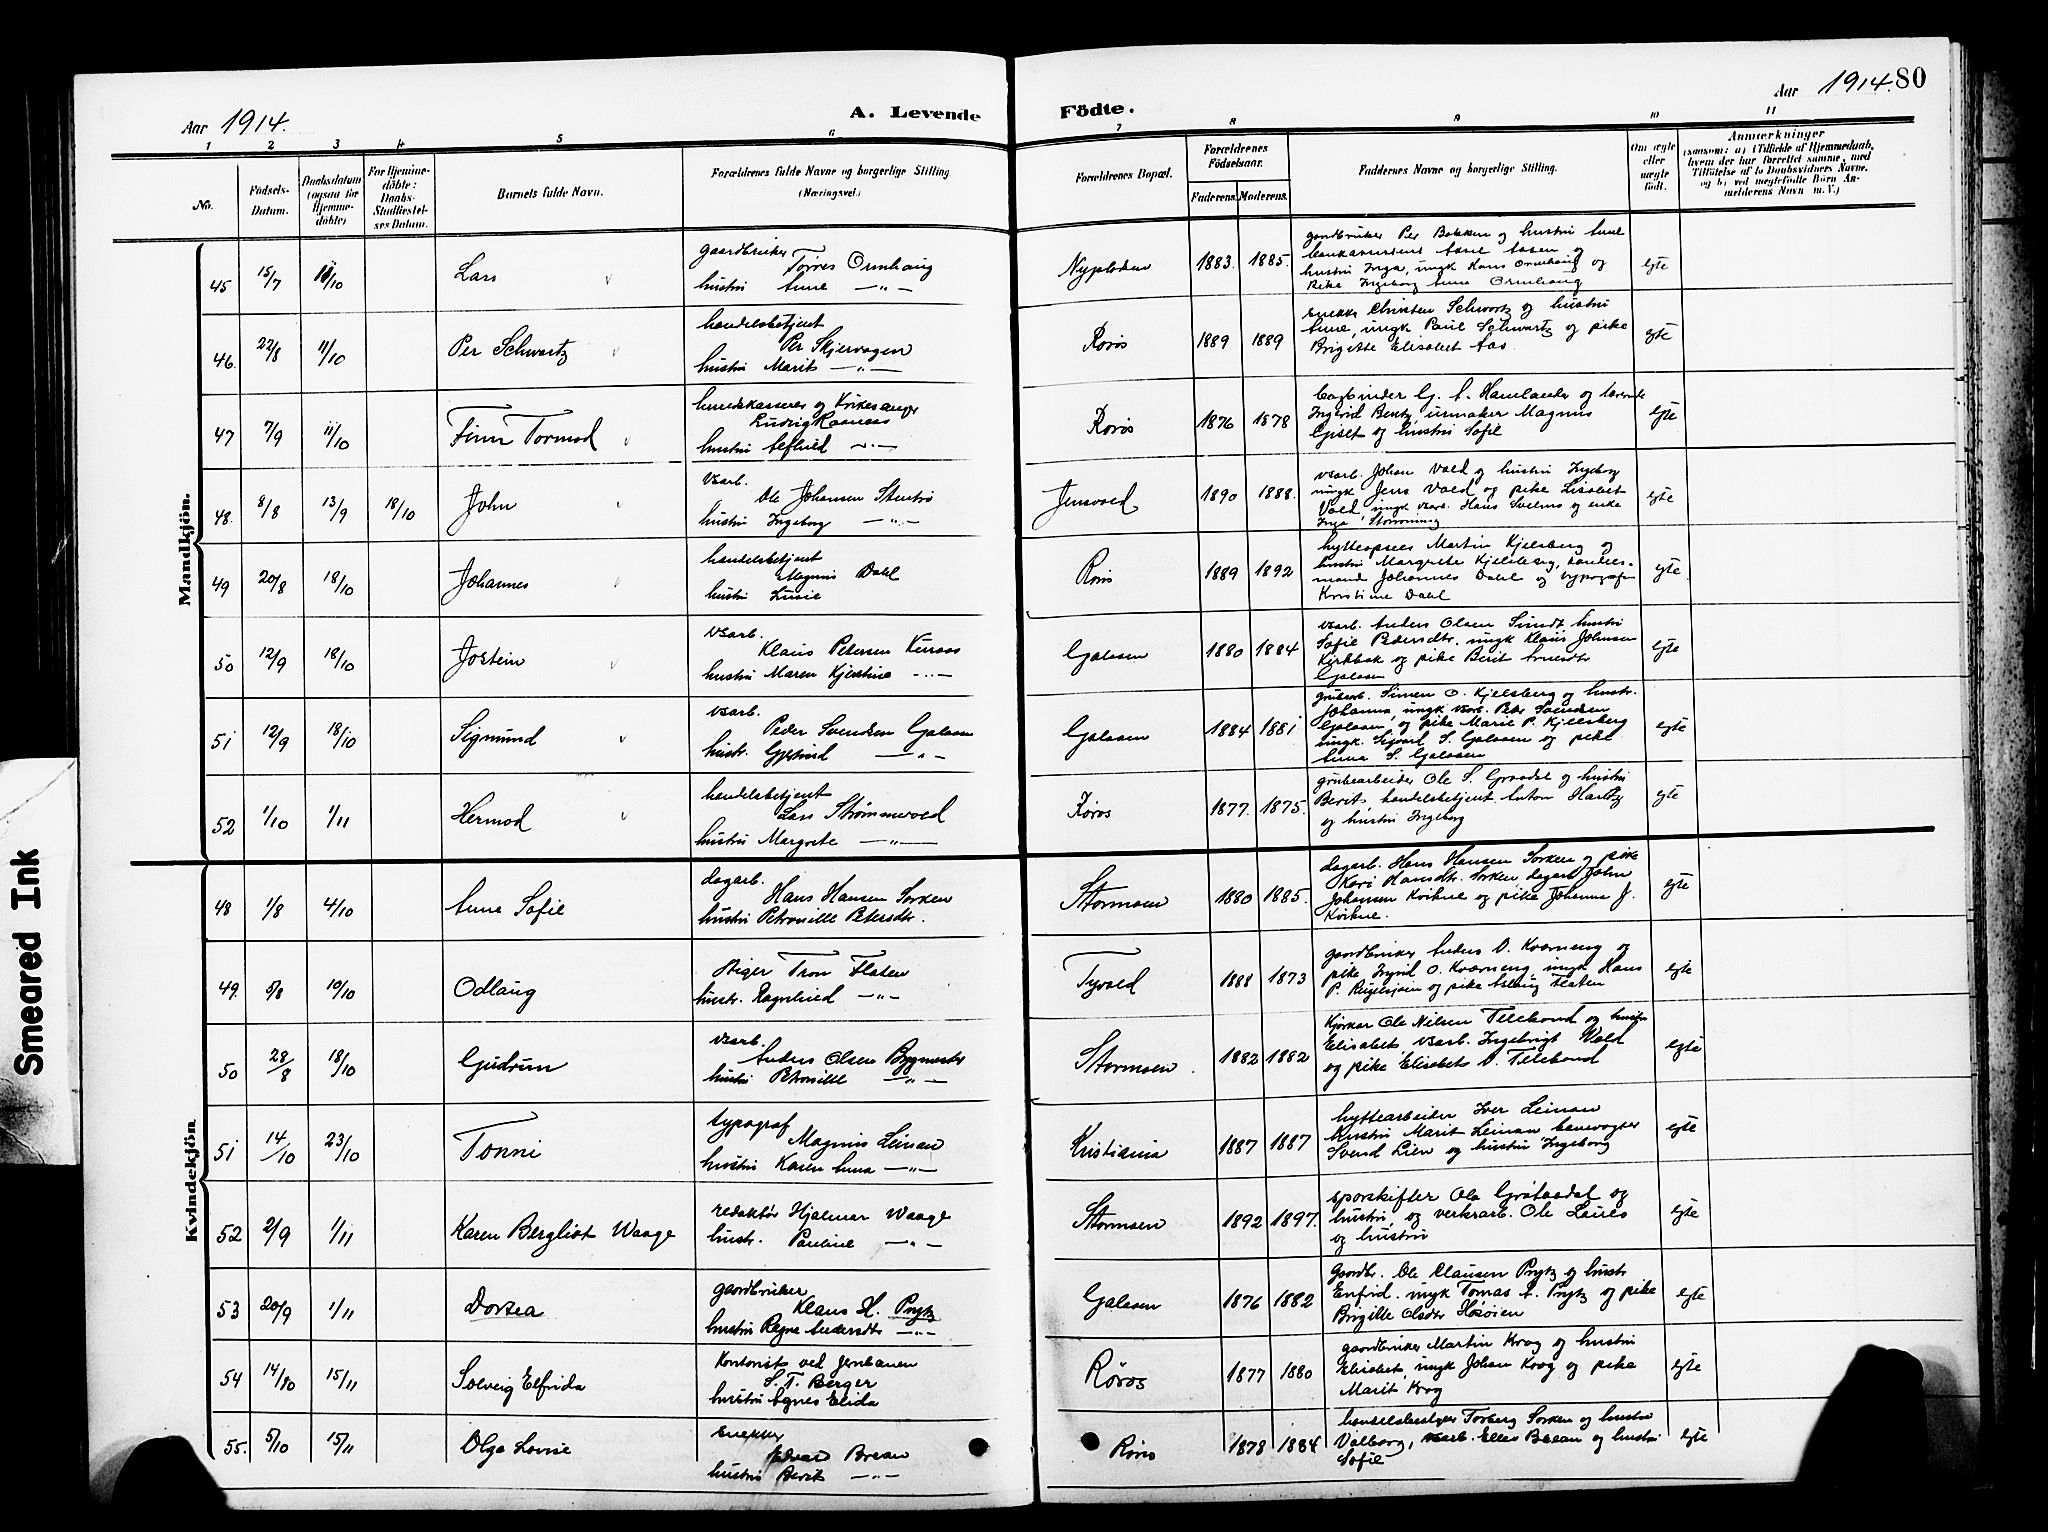 Aar 1914.
A. Levende
Födte.
Aar 1914. 80
1 2 3 4 5 6 7 8 9 10 11
No.
Födsels-
Datum.
Daabsdatum
(ogsaa for
Hjemme-
döbte)
For Hjemme-
döbte:
Daabs-
Stadfæstel-
ses Datum.
Barnets fulde Navn.
Forældrenes fulde Navne og borgerlige Stilling
(Næringsvei.)
Forældrenes Bopæl.
Forældrenes
Födselsaar.
Faderens. Moderens.
Faddernes Navne og borgerlige Stilling.
Om ægte
eller
uægte
født.
Anmærkninger
(saasom: a) i Tilfælde af Hjemmedaab,
hvem der har forrettet samme, med
Tilföielse af to Daabsvidners Navne,
og b) ved uægtefödte Börn An-
melderens Navn m. V.)
Mandkjön.
45 15/7 11/10 Lars
gaardbruker
Tørres Ormhaug
hustru Anne —"—
Nyplodsen 1883. 1885.
gaardbruker Per Bakken og hustru Anne
bankassistent Arne Aasen og
hustru Inga, ungk Hans Ormhaug og
Pike Ingeborg Anna Ormhaug
egte
46. 22/8 11/10 Per Schwartz
handelsbetjent
Per Skjervagen
hustru Marit —"—
Røros 1889 1889
snekker Christen Schwartz og hustru
Anne, ungk Paul Schwartz og pike
Brigitte Elisabet Aas.
egte
47 7/9 11/10 Finn Tormod
Ludvig
hustru Alfhild —"—
Røros 1876 1878
bogbinder G. A. Hamlander og
Ingerid Bentz, urmaker Magnus
Gjiset og hustru Sofie
egte
48. 8/8 13/9 18/10 John
vsarb.
Ole Johansen
hustru Ingeborg —"—
Jensvold 1890 1888.
vsarb. Johan Vold og hustru Ingeborg
ungk Jens Vold og pike Lisabet
Vold, ungk vsarb. Hans og enke
Inga
egte
49 20/8 18/10 Johannes
handelsbetjent
Magnus Dahl
hustru Lusie
Røros 1889 1892
hytteopsees Martin Kjelsberg og
hustru Margrete Kjelsberg, handels-
mand Johannes Dahl og typograf
Kristine Dahl
egte
50 12/9 18/10 Jostein
vsarb.
Klaus Petersen Kuraas
hustru Maren Kjerstine —"—
Galaaen 1880 1884
vsarb. Anders Olsen Sundt hustru
Sofie Pedersdtr. ungk Klaus Johnsen
Kirkbak og pike Berit
Galaaen
egte
51 12/9 18/10 Sigmund
vsarb.
Peder Svendsen Galaaen
hustr. —"—
Galaaen 1884 1881
grubearb. Simen O. Kjelsberg og hustr.
Johanna, ungk vsarb. Peder Svendsen
Galaaen, og pike Marie P. Kjelsberg
ungk. Sivert S. Galaaen og pike
Anna S. Galaaen
egte
52 1/10 1/11 Hermod
handelsbetjent
Lars Strømmevold
hustru Margrete —"—
Røros 1877. 1875.
grubearbeider Ole S. Graadal og hustru
Berit, handelsbetjent Anton Hartz
og hustru Ingeborg
egte
Kvindekjön
48 1/8 4/10 Anne Sofie
dagarb.
Hans Hansen Sorken
hustru Petronille Petersdtr.
Stormoen 1880 1885.
dagarb. Hans Hansen Sorken og pike
Kari Hansdtr. Sorken dagarb John
Johansen Kvikne og pike Johanna J.
Kvikne.
egte
49. 5/8 10/10 Odlaug
Tron Flaten
hustr. Ragnhild —"—
Tyvold 1888 1873
gaardbruker Anders O. Kværneng og
pike Ingrid O. Kværneng, ungk Hans
P. Rugelsjøen og pike Aslaug Flaten
egte
50 28/8 18/10 Gudrun
vsarb.
Anders Olsen Bygmestr
hustru Petronille —"—
Stormoen. 1882 1882
Kjørkar Ole Nilsen Tilebond og hustru
Elisabet vsarb. Ingebrigt Wold
og pike Elisabet O. Tilebond
egte
51 14/10 23/10 Tonni
typograf
Magnus Leinan
hustru Karen Anna —"—
Kristiania 1887 1887
hyttearbeider Iver Leinan
hustru Marit Leinan banevogter
Svend Lien og hustru Ingeborg
egte
52 2/9 1/11 Karen Bergliot Waage
redaktør Hjalmar Waage
hustr. Pauline —"—
Stormoen 1892 1897.
sporskifter Ole Grøtaadal og
hustru, og verksarb. Ole Laures
og hustru
egte
53 20/9 1/11 Dortea
gaardbruker
Klaus H. Prytz
hustru Ragna Andersdtr —"—
Galaaen 1876 1882
Gaardbr. Ole Clausen Prytz og hustr
Enfrid. ungk Tomas A. Prytz og pike
Brigitte Olsdtr Høsøien
egte
54 14/10 15/11 Solveig Elfrida
Kontorist ved Jernbanen
S. T. Berger
hustru Agnes Elida
Røros 1877 1880
gaardbruker Martin Krog og hustru
Elisabet, ungk Johan Krog og pike
Marit Krog
egte
55. 5/10 15/11 Olga Lovise
snekker
Edvard Brean
hustru Berit —"—
Røros 1878 1884
handelsbestyrer Torberg Sorken og hustru
Valborg, vsarb. Elles Brean og hustru
Sofie
egte
Smeared Ink